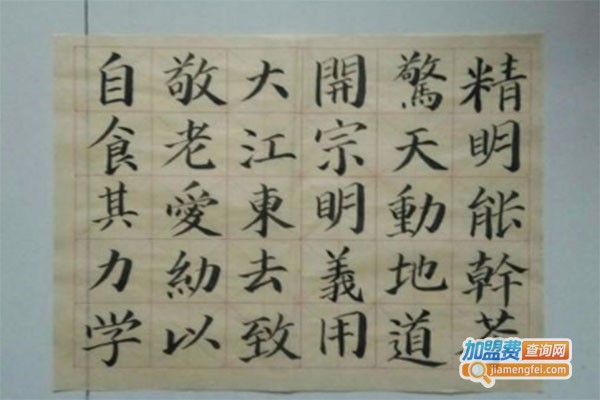 精明能幹
驚天動地道
開宗明義用
大江東去致
敬老愛幼以
自食其力学
加盟费查询网
jiamengfei.com